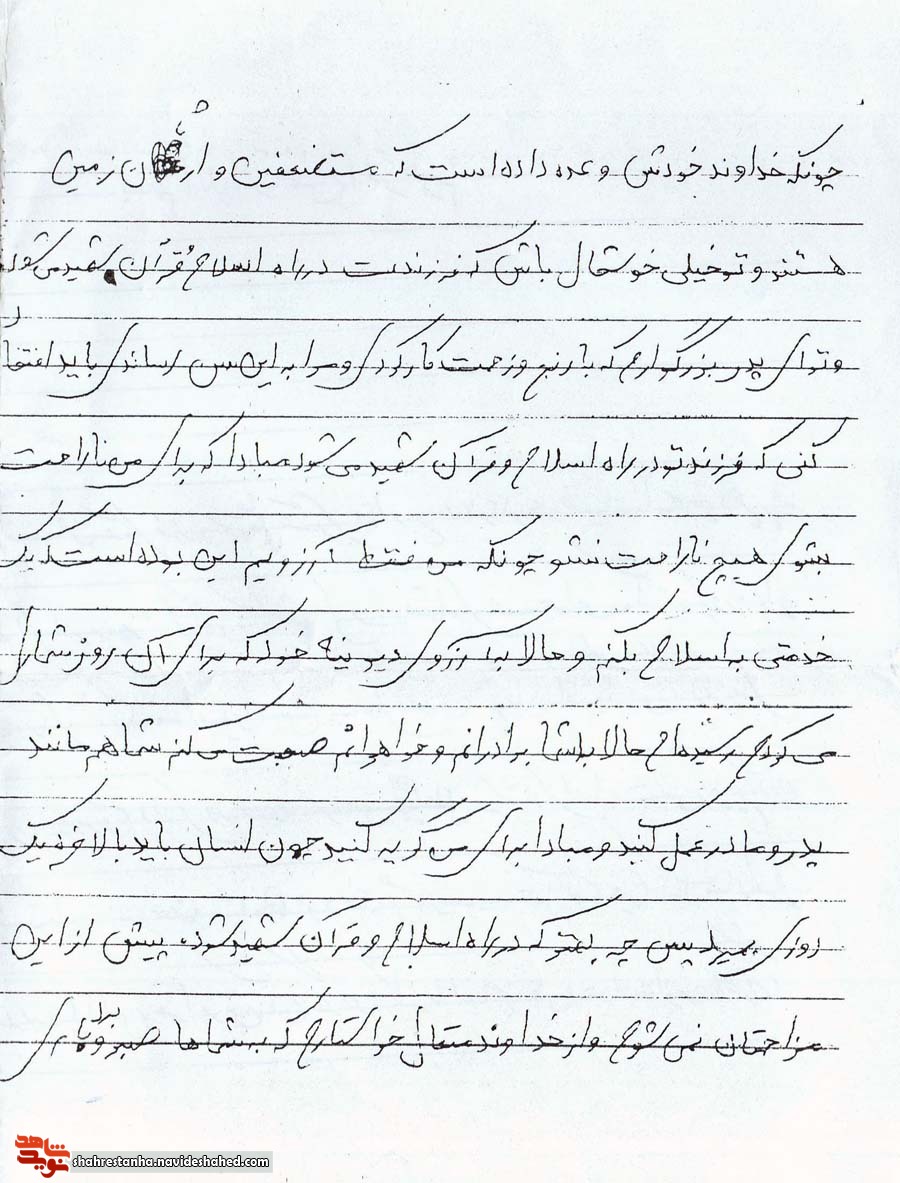 چونکه خداوند خودش وعده داده است که مستضعفین وارثان زمین
هستند و تو خیلی خوشحال باش که فرزندت در راه اسلام قرآن شهید می شود
و تو ای پدر بزرگوارم که با رنج و زحمت کار کردی و مرا به این سن رساندی باید افتخار
کنی که فرزند تو در راه اسلام و قرآن شهید می شود مبادا که برای من ناراحت
بشوی هیچ ناراحت نشو چونکه من فقط آرزویم این بوده است که یک
خدمتی به اسلام بکنم و حالا به آرزوی دیرینه خود که برای آن روز شماری
می کردم رسیده ام حالا به شما برادرانم و خواهرانم صحبت می کنم شما هم مانند
پدر و مادر عمل کنید و مبادا برای من گریه کنید چون انسان باید بالاخره یک
روزی بمیرد پس چه بهتر که در راه اسلام و قرآن شهید شود، پیش از این
مزاحمتان نمی شوم و از خداوند متعال خواستارم که به شماها صبر و بردباری
شاهد
نوید
shahrestanha.navideshahed.com